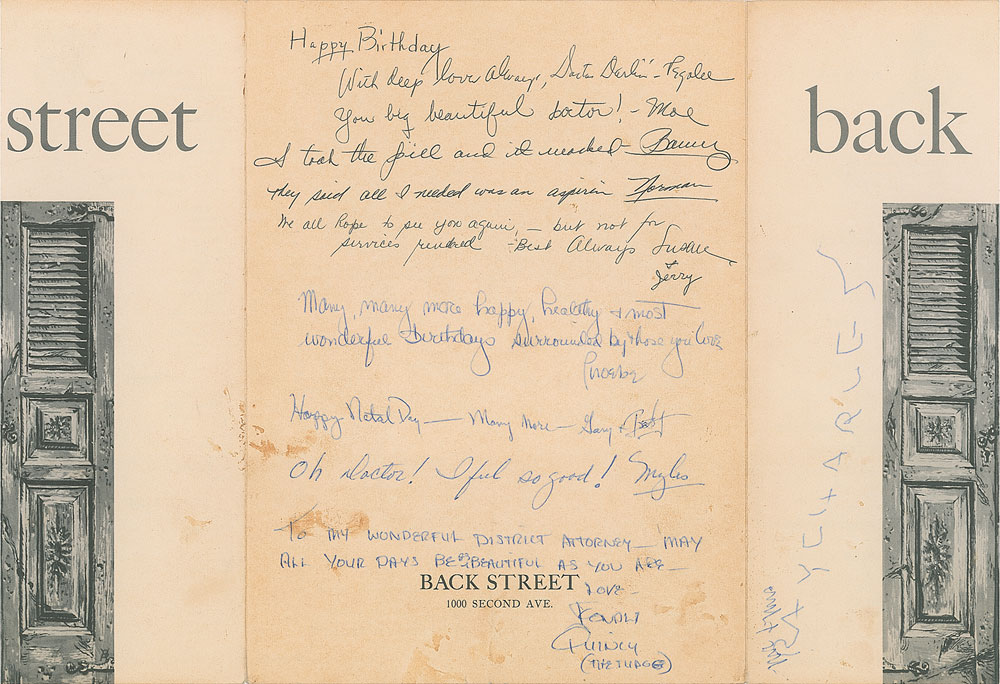 street
back
Happy Birthday
With deep love Always, Doctor Darlin' - Pegalee
You big beautiful doctor! - Moe
I took the pill and it worked
They said all I needed was an aspirin Norman
We all hope to see you again, - but not for
services rendered - Best Always
+
Jerry
Many, many more happy, healthy + most
wonderful Birthdays surrounded by those you love
Phoebe
Happy Natal Day - Many More - Gary +
Oh Doctor! I feel so good! Myles
To MY WONDERFUL DISTRICT ATTORNEY - MAY
ALL YOUR DAYS BE AS BEAUTIFUL AS YOU ARE -
BACK STREET
LOVE -
1000 SECOND AVE.
QUINCY
(THE JUDGE)